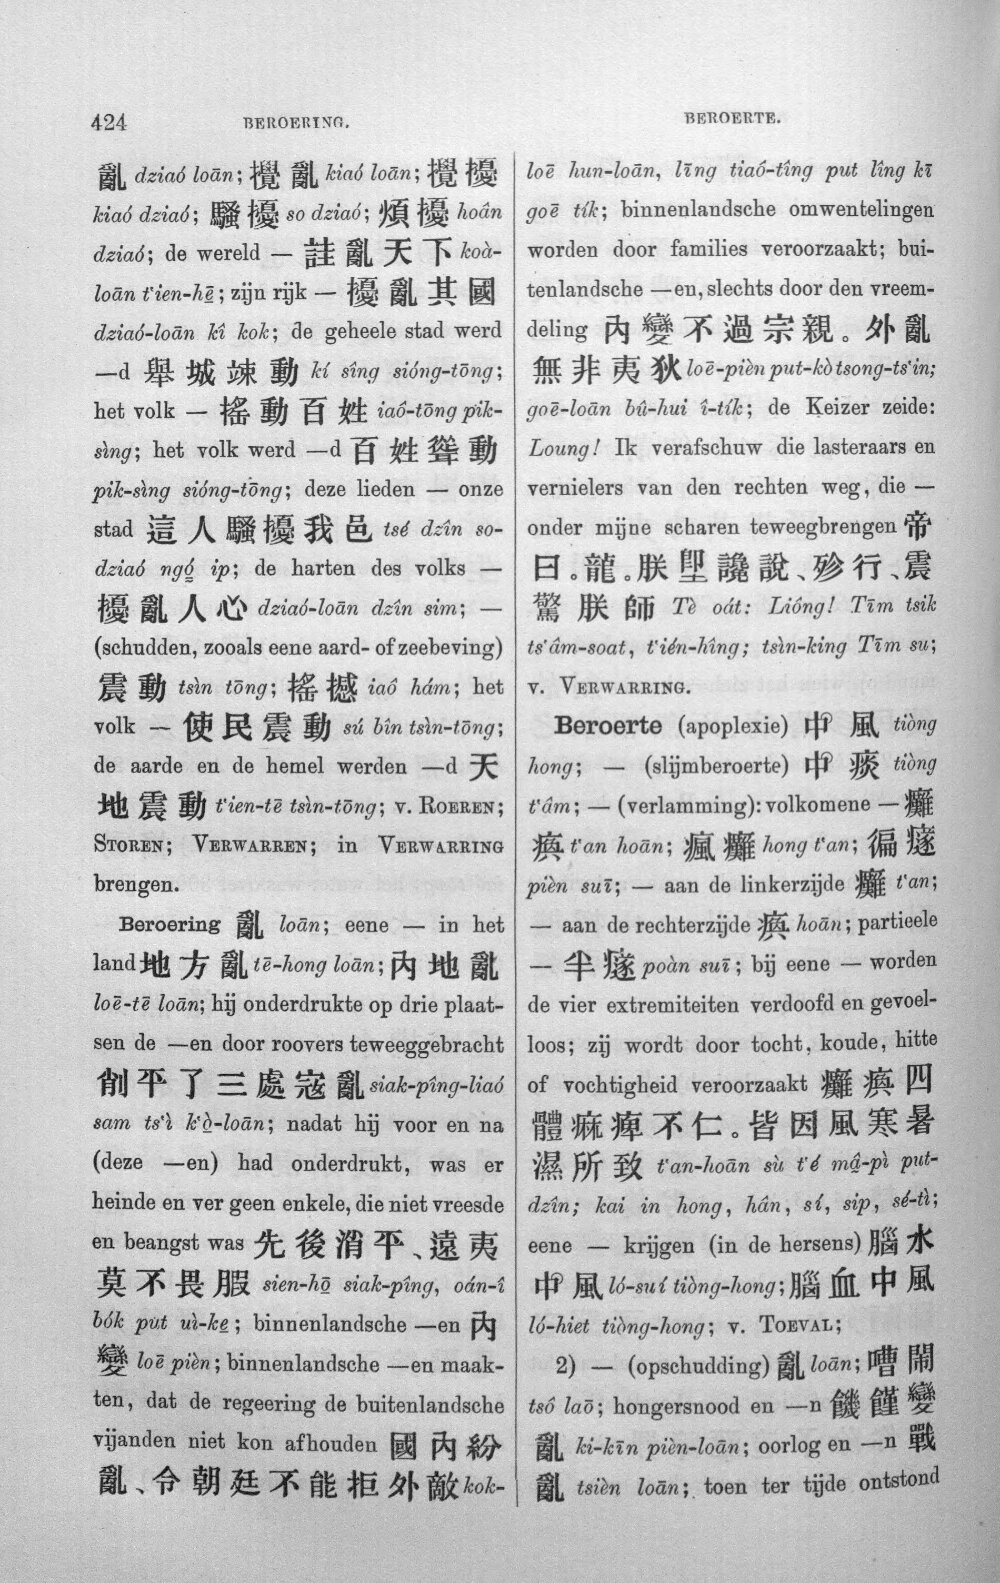 424
BEROERING.
BEROERTE.
亂 dziaó loān; 攪亂 kiaó loān; 攪擾
kiaó dziaó; 騷擾 so dziaó; 煩擾 hoân
dziaó; de wereld — 詿亂天下 koà-
loān t'ien-hē; zijn rijk — 擾亂其國
dziaó-loān kî kok; de geheele stad werd
—d 舉城竦動 kí sîng sióng-tōng;
het volk — 搖動百姓 iaô-tōng pik-
sìng; het volk werd —d 百姓聳動
pik-sìng sióng-tōng; deze lieden — onze
stad 這人騷擾我邑 tsé dzîn so-
dziaó ngó ip; de harten des volks —
擾亂人心 dziaó-loān dzîn sim; —
(schudden, zooals eene aard- of zeebeving)
震動 tsìn tōng; 搖撼 iaô hám; het
volk — 使民震動 sú bîn tsìn-tōng;
de aarde en de hemel werden —d 天
地震動 t'ien-tē tsìn-tōng; v. ROEREN;
STOREN; VERWARREN; in VERWARRING
brengen.
Beroering 亂 loān; eene — in het
land 地方亂 tē-hong loān; 內地亂
loē-tē loān; hij onderdrukte op drie plaat-
sen de —en door roovers teweeggebracht
削平了三處寇亂 siak-pîng-liaó
sam ts'ì k'ò-loān; nadat hij voor en na
(deze —en) had onderdrukt, was er
heinde en ver geen enkele, die niet vreesde
en beangst was 先後消平、遠夷
莫不畏服 sien-hō siak-pîng, oán-î
bók put uì-ke; binnenlandsche —en 內
變 loē pièn; binnenlandsche —en maak-
ten, dat de regeering de buitenlandsche
vijanden niet kon afhouden 國內紛
亂、令朝廷不能拒外敵 kok-
loē hun-loān, līng tiaô-tîng put lîng kī
goē tík; binnenlandsche omwentelingen
worden door families veroorzaakt; bui-
tenlandsche —en, slechts door den vreem-
deling 內變不過宗親。外亂
無非夷狄 loē-pièn put-kò tsong-ts'in;
goē-loān bû-hui î-tík; de Keizer zeide:
Loung! Ik verafschuw die lasteraars en
vernielers van den rechten weg, die —
onder mijne scharen teweegbrengen 帝
曰。龍。朕堲讒說、殄行、震
驚朕師 Tè oát: Liông! Tīm tsik
ts'âm-soat, t'ién-hîng; tsìn-king Tīm su;
v. VERWARRING.
Beroerte (apoplexie) 中風 tiòng
hong; — (slijmberoerte) 中痰 tiòng
t'âm; — (verlamming): volkomene — 癱
瘓 t'an hoān; 瘋癱 hong t'an; 偏𤸁
pièn suī; — aan de linkerzijde 癱 t'an;
— aan de rechterzijde 瘓 hoān; partieele
— 半𤸁 poàn suī; bij eene — worden
de vier extremiteiten verdoofd en gevoel-
loos; zij wordt door tocht, koude, hitte
of vochtigheid veroorzaakt 癱瘓四
體痲痺不仁。皆因風寒暑
濕所致 t'an-hoān sù t'é mâ-pì put-
dzîn; kai in hong, hân, sí, sip, sé-tì;
eene — krijgen (in de hersens) 腦水
中風 ló-suí tiòng-hong; 腦血中風
ló-hiet tiòng-hong; v. TOEVAL;
2) — (opschudding) 亂 loān; 嘈鬧
tsô laō; hongersnood en —n 饑饉變
亂 ki-kīn pièn-loān; oorlog en —n 戰
亂 tsièn loān; toen ter tijde ontstond